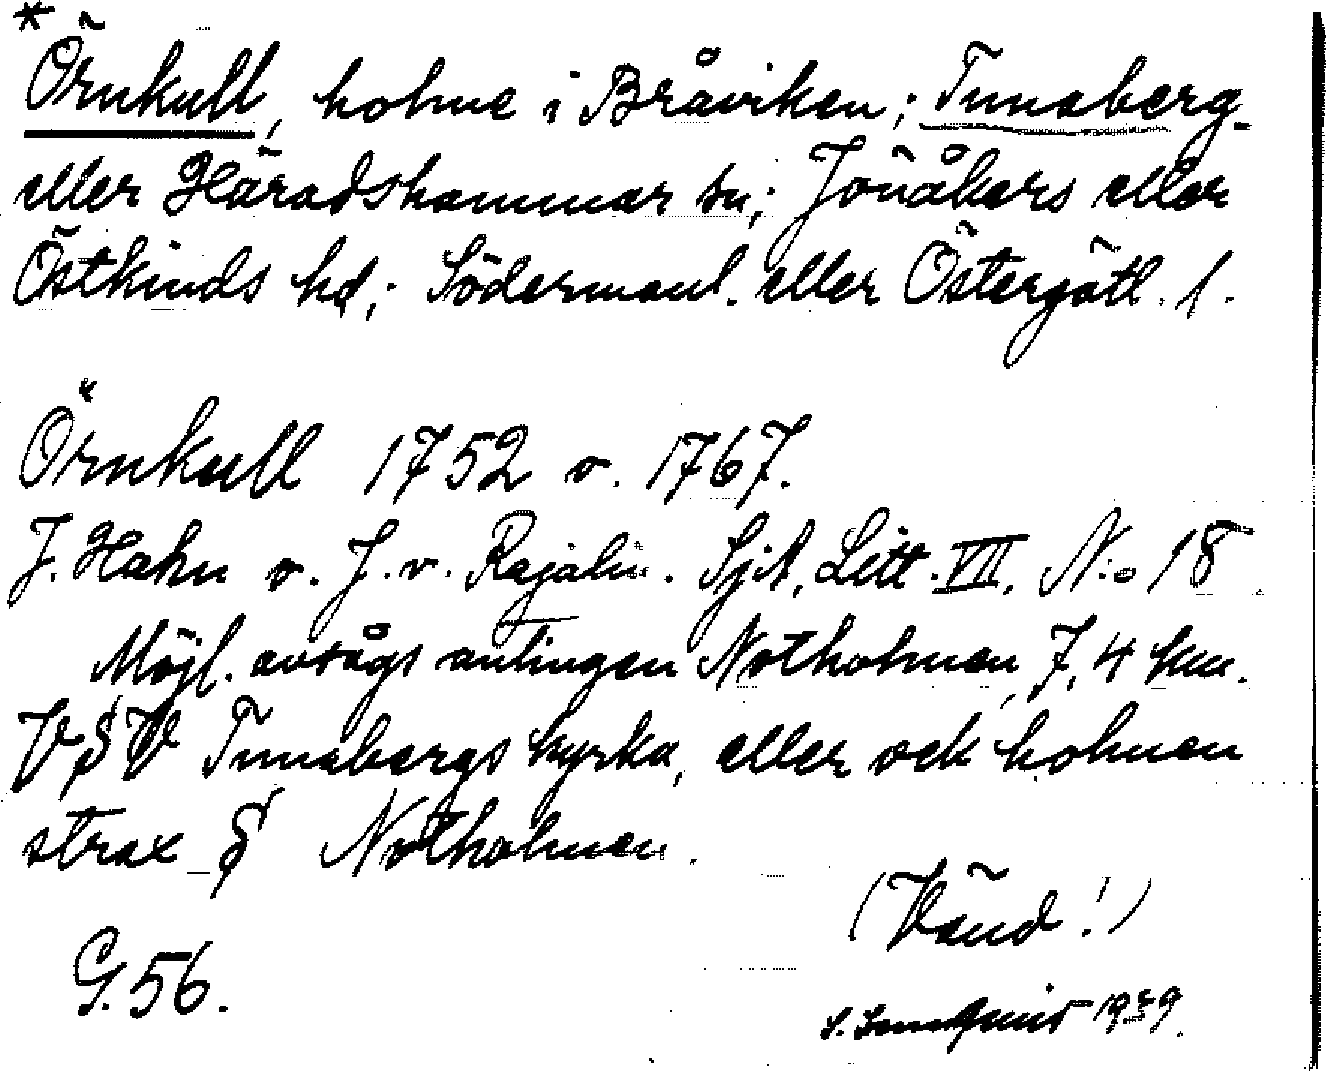 *
Örnkull, holme i Bråviken; Tunaberg-
eller Häradshammar sn; Jönåkers eller
Östkinds hd; Södermanl. eller Östergötl. l.
Örnkull 1752 o. 1767.
J. Hahn o. J. v. Rajalin. SjA, Litt. VII, N:o 18.
Möjl. avsågs antingen Notholmen, 7,4 km.
V§V Tunabergs kyrka, eller ock holmen
strax § Notholmen.
(Vänd!)
G. 56.
1939.